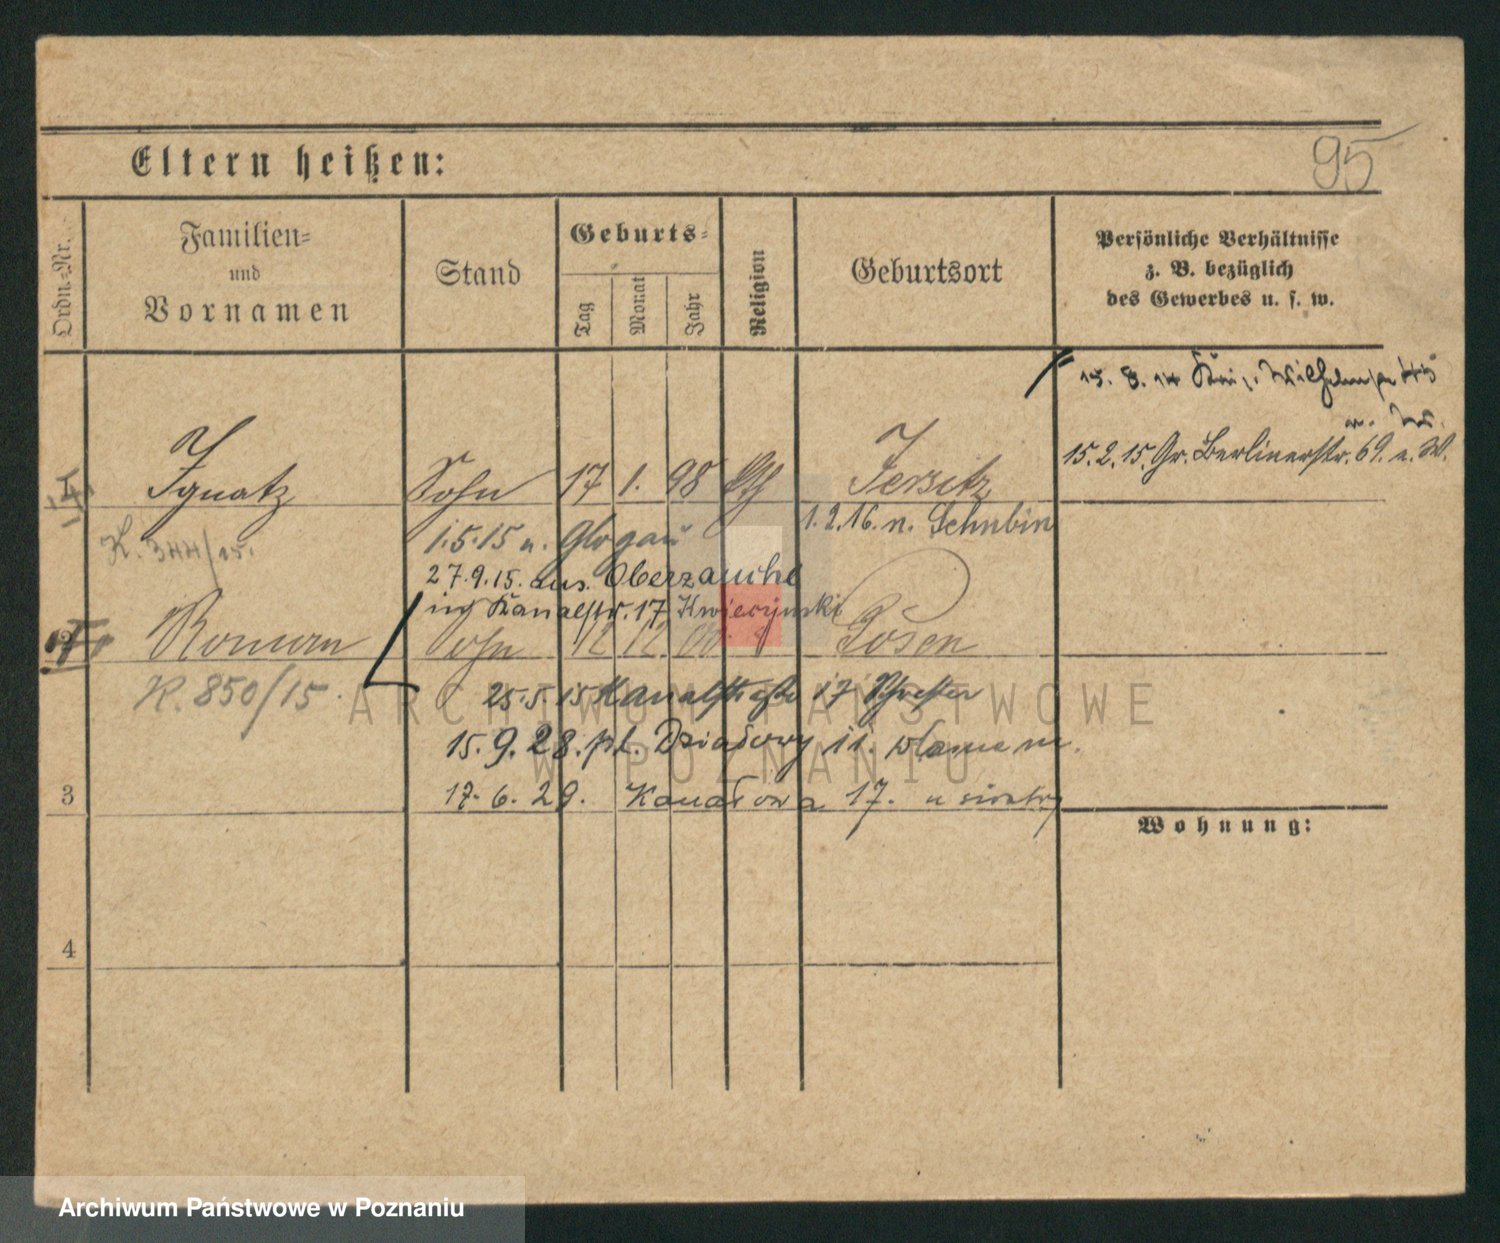 95
Eltern heißen:
Ordn.-Nr.
Familien-
und
Vornamen
Stand
Geburts-
Tag
Monat
Jahr
Religion
Geburtsort
Persönliche Verhältnisse
z. B. bezüglich
des Gewerbes u. s. w.
15. 8. 14 Wilhelmstr
15. 2. 15. Gr. Berlinerstr. 69. a. W.
Ignatz Sohn 17 1. 98 Jersitz
1. 2. 16. n. Schubin
K. 344/15. 1. 5. 15 n. Glogau
27. 9. 15. aus
in Kanalstr. 17
Roman Sohn 12 12 Posen
K. 850/15.
25. 5. 15 Kanalstraße 17 Schwester
15. 9. 28. pl. Działowy 11.
3
17. 6. 29. Kanałowa 17. u siostry
Wohnung:
4
ARCHIWUM PAŃSTWOWE
W POZNANIU
Archiwum Państwowe w Poznaniu